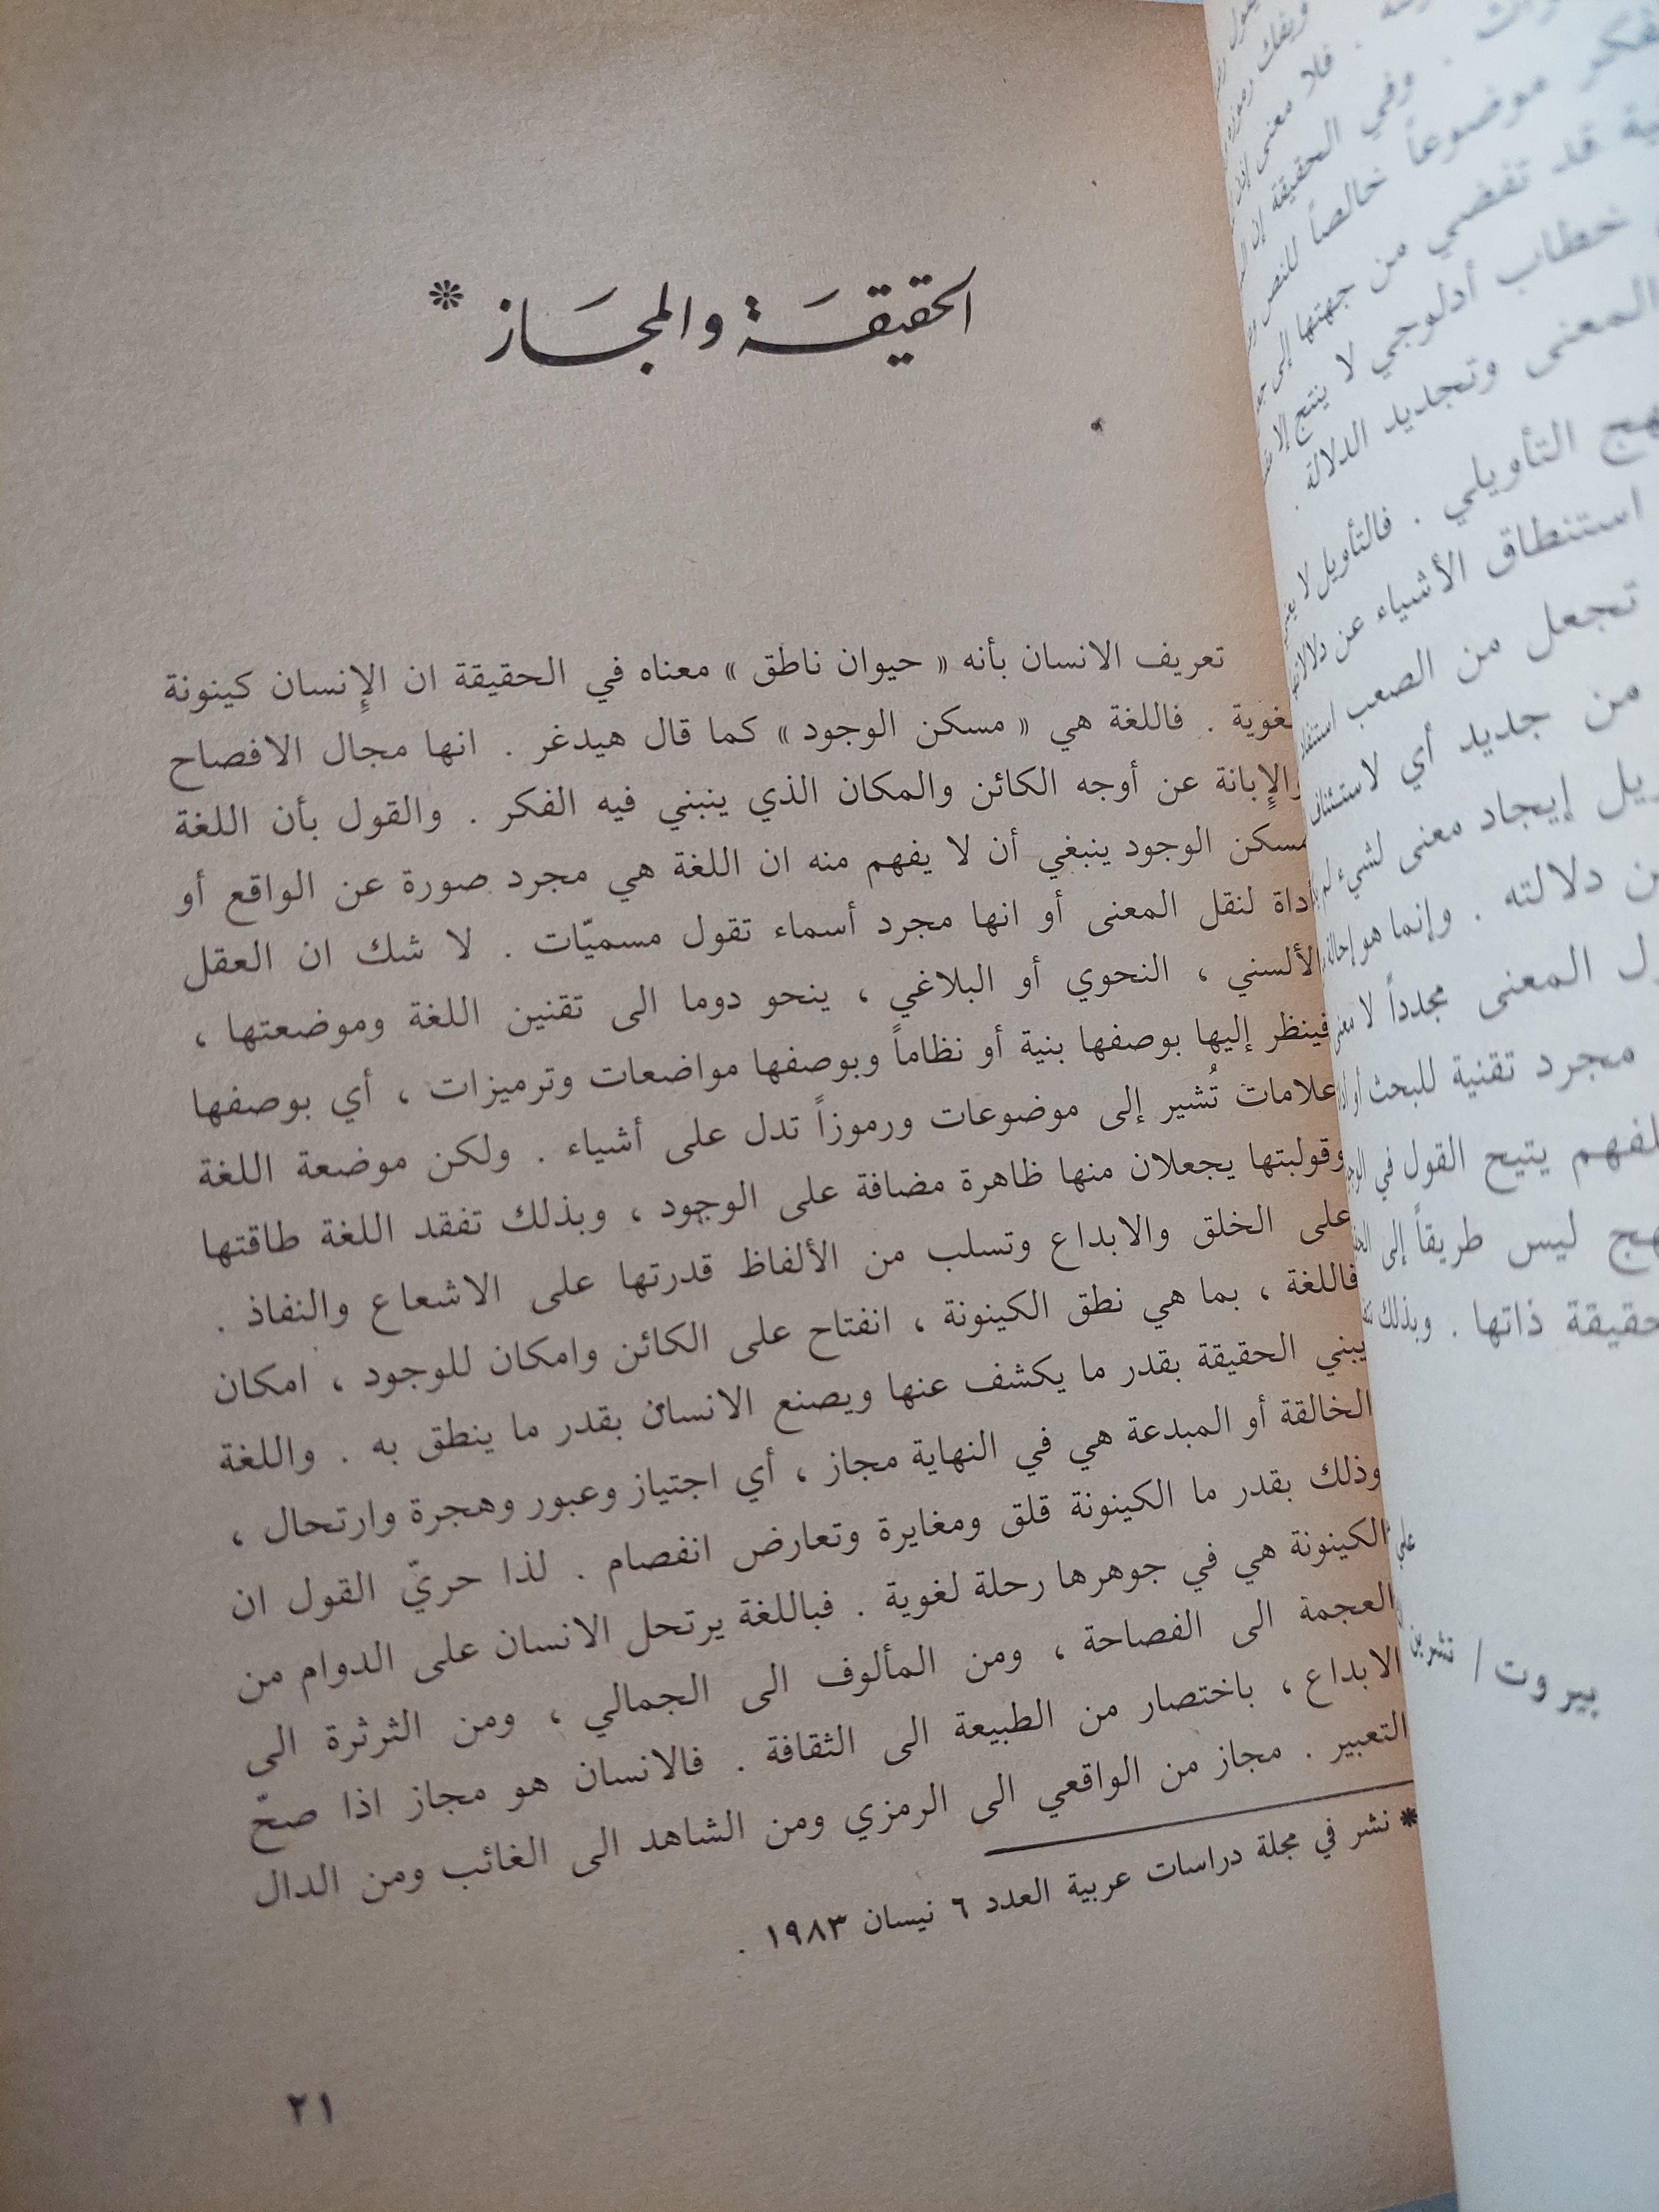 الحقيقَة والمجَاز *
تعريف الانسان بأنه « حيوان ناطق » معناه في الحقيقة ان الإنسان كينونة
لغوية . فاللغة هي « مسكن الوجود » كما قال هيدغر . انها مجال الافصاح
والإبانة عن أوجه الكائن والمكان الذي ينبني فيه الفكر . والقول بأن اللغة
مسكن الوجود ينبغي أن لا يفهم منه ان اللغة هي مجرد صورة عن الواقع أو
أداة لنقل المعنى أو انها مجرد أسماء تقول مسميّات . لا شك ان العقل
الألسني ، النحوي أو البلاغي ، ينحو دوما الى تقنين اللغة وموضعتها ،
فينظر إليها بوصفها بنية أو نظاماً وبوصفها مواضعات وترميزات ، أي بوصفها
علامات تُشير إلى موضوعات ورموزاً تدل على أشياء . ولكن موضعة اللغة
وقولبتها يجعلان منها ظاهرة مضافة على الوجود ، وبذلك تفقد اللغة طاقتها
على الخلق والابداع وتسلب من الألفاظ قدرتها على الاشعاع والنفاذ .
فاللغة ، بما هي نطق الكينونة ، انفتاح على الكائن وامكان للوجود ، امكان
يبني الحقيقة بقدر ما يكشف عنها ويصنع الانسان بقدر ما ينطق به . واللغة
الخالقة أو المبدعة هي في النهاية مجاز ، أي اجتياز وعبور وهجرة وارتحال ،
وذلك بقدر ما الكينونة قلق ومغايرة وتعارض انفصام . لذا حريّ القول ان
الكينونة هي في جوهرها رحلة لغوية . فباللغة يرتحل الانسان على الدوام من
العجمة الى الفصاحة ، ومن المألوف الى الجمالي ، ومن الثرثرة الى
الابداع ، باختصار من الطبيعة الى الثقافة . فالانسان هو مجاز اذا صحّ
التعبير . مجاز من الواقعي الى الرمزي ومن الشاهد الى الغائب ومن الدال
* نشر في مجلة دراسات عربية العدد ٦ نيسان ١٩٨٣ .
٢١
وفي الحقيقة إن
موضوعاً خالصاً للنص
قد تفضي من جهتها إلى
خطاب أدلوجي لا ينتج إلا
المعنى وتجديد الدلالة .
التأويلي . فالتأويل لا
استنطاق الأشياء عن
تجعل من الصعب
من جديد أي
إيجاد معنى لشيء لم
دلالته . وإنما هو إحالة
المعنى مجدداً لا معنى
مجرد تقنية للبحث أو
يتيح القول في
ليس طريقاً إلى
ذاتها . وبذلك
علي
بيروت / تشرين